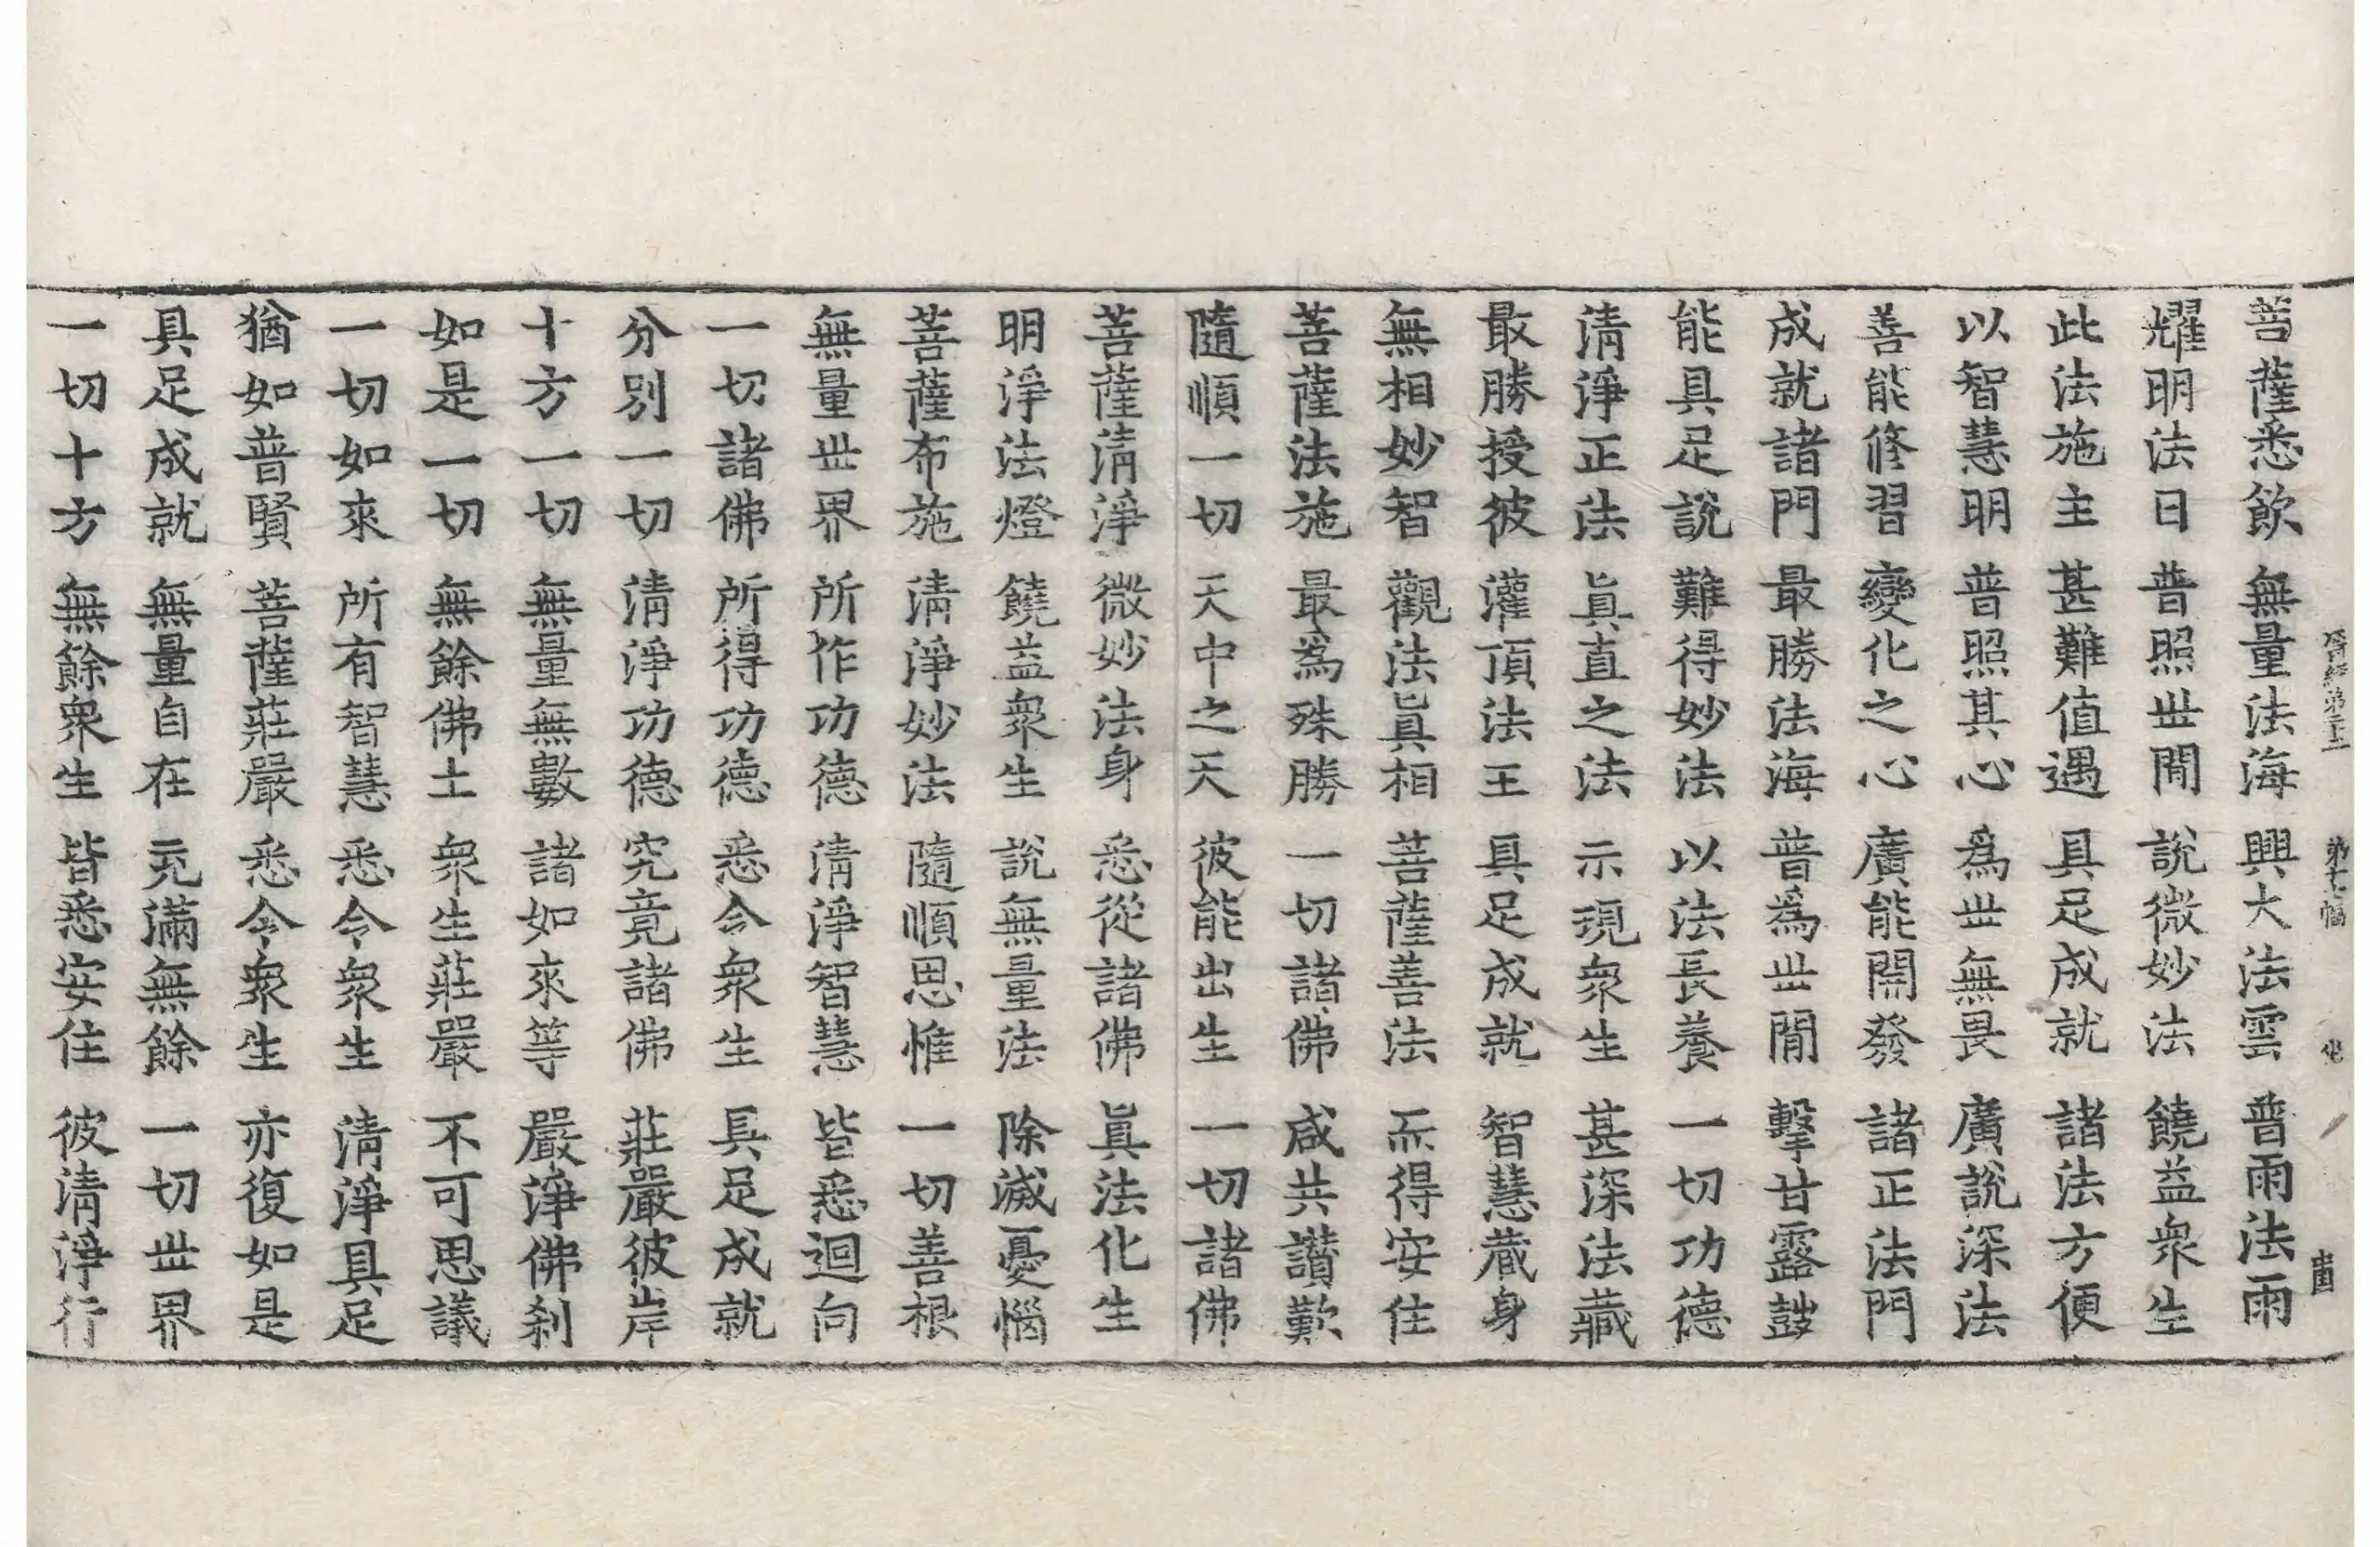 菩薩悉飲 無量法海 興大法雲 普雨法雨
耀明法日 普照世間 說微妙法 饒益衆生
此法施主 甚難值遇 具足成就 諸法方便
以智慧明 普照其心 爲世無畏 廣說深法
善能修習 變化之心 廣能開發 諸正法門
成就諸門 最勝法海 普爲世間 擊甘露鼓
能具足說 難得妙法 以法長養 一切功德
淸淨正法 眞直之法 示現衆生 甚深法藏
最勝授彼 灌頂法王 具足成就 智慧藏身
無相妙智 觀法眞相 菩薩善法 而得安住
菩薩法施 最爲殊勝 一切諸佛 咸共讚歎
隨順一切 天中之天 彼能出生 一切諸佛
菩薩淸淨 微妙法身 悉從諸佛 眞法化生
明淨法燈 饒益衆生 說無量法 除滅憂惱
菩薩布施 淸淨妙法 隨順思惟 一切善根
無量世界 所作功德 淸淨智慧 皆悉迴向
一切諸佛 所得功德 悉令衆生 具足成就
分別一切 淸淨功德 究竟諸佛 莊嚴彼岸
十方一切 無量無數 諸如來等 嚴淨佛刹
如是一切 無餘佛土 衆生莊嚴 不可思議
一切如來 所有智慧 悉令衆生 淸淨具足
猶如普賢 菩薩莊嚴 悉令衆生 亦復如是
具足成就 無量自在 充滿無餘 一切世界
一切十方 無餘衆生 皆悉安住 彼淸淨行